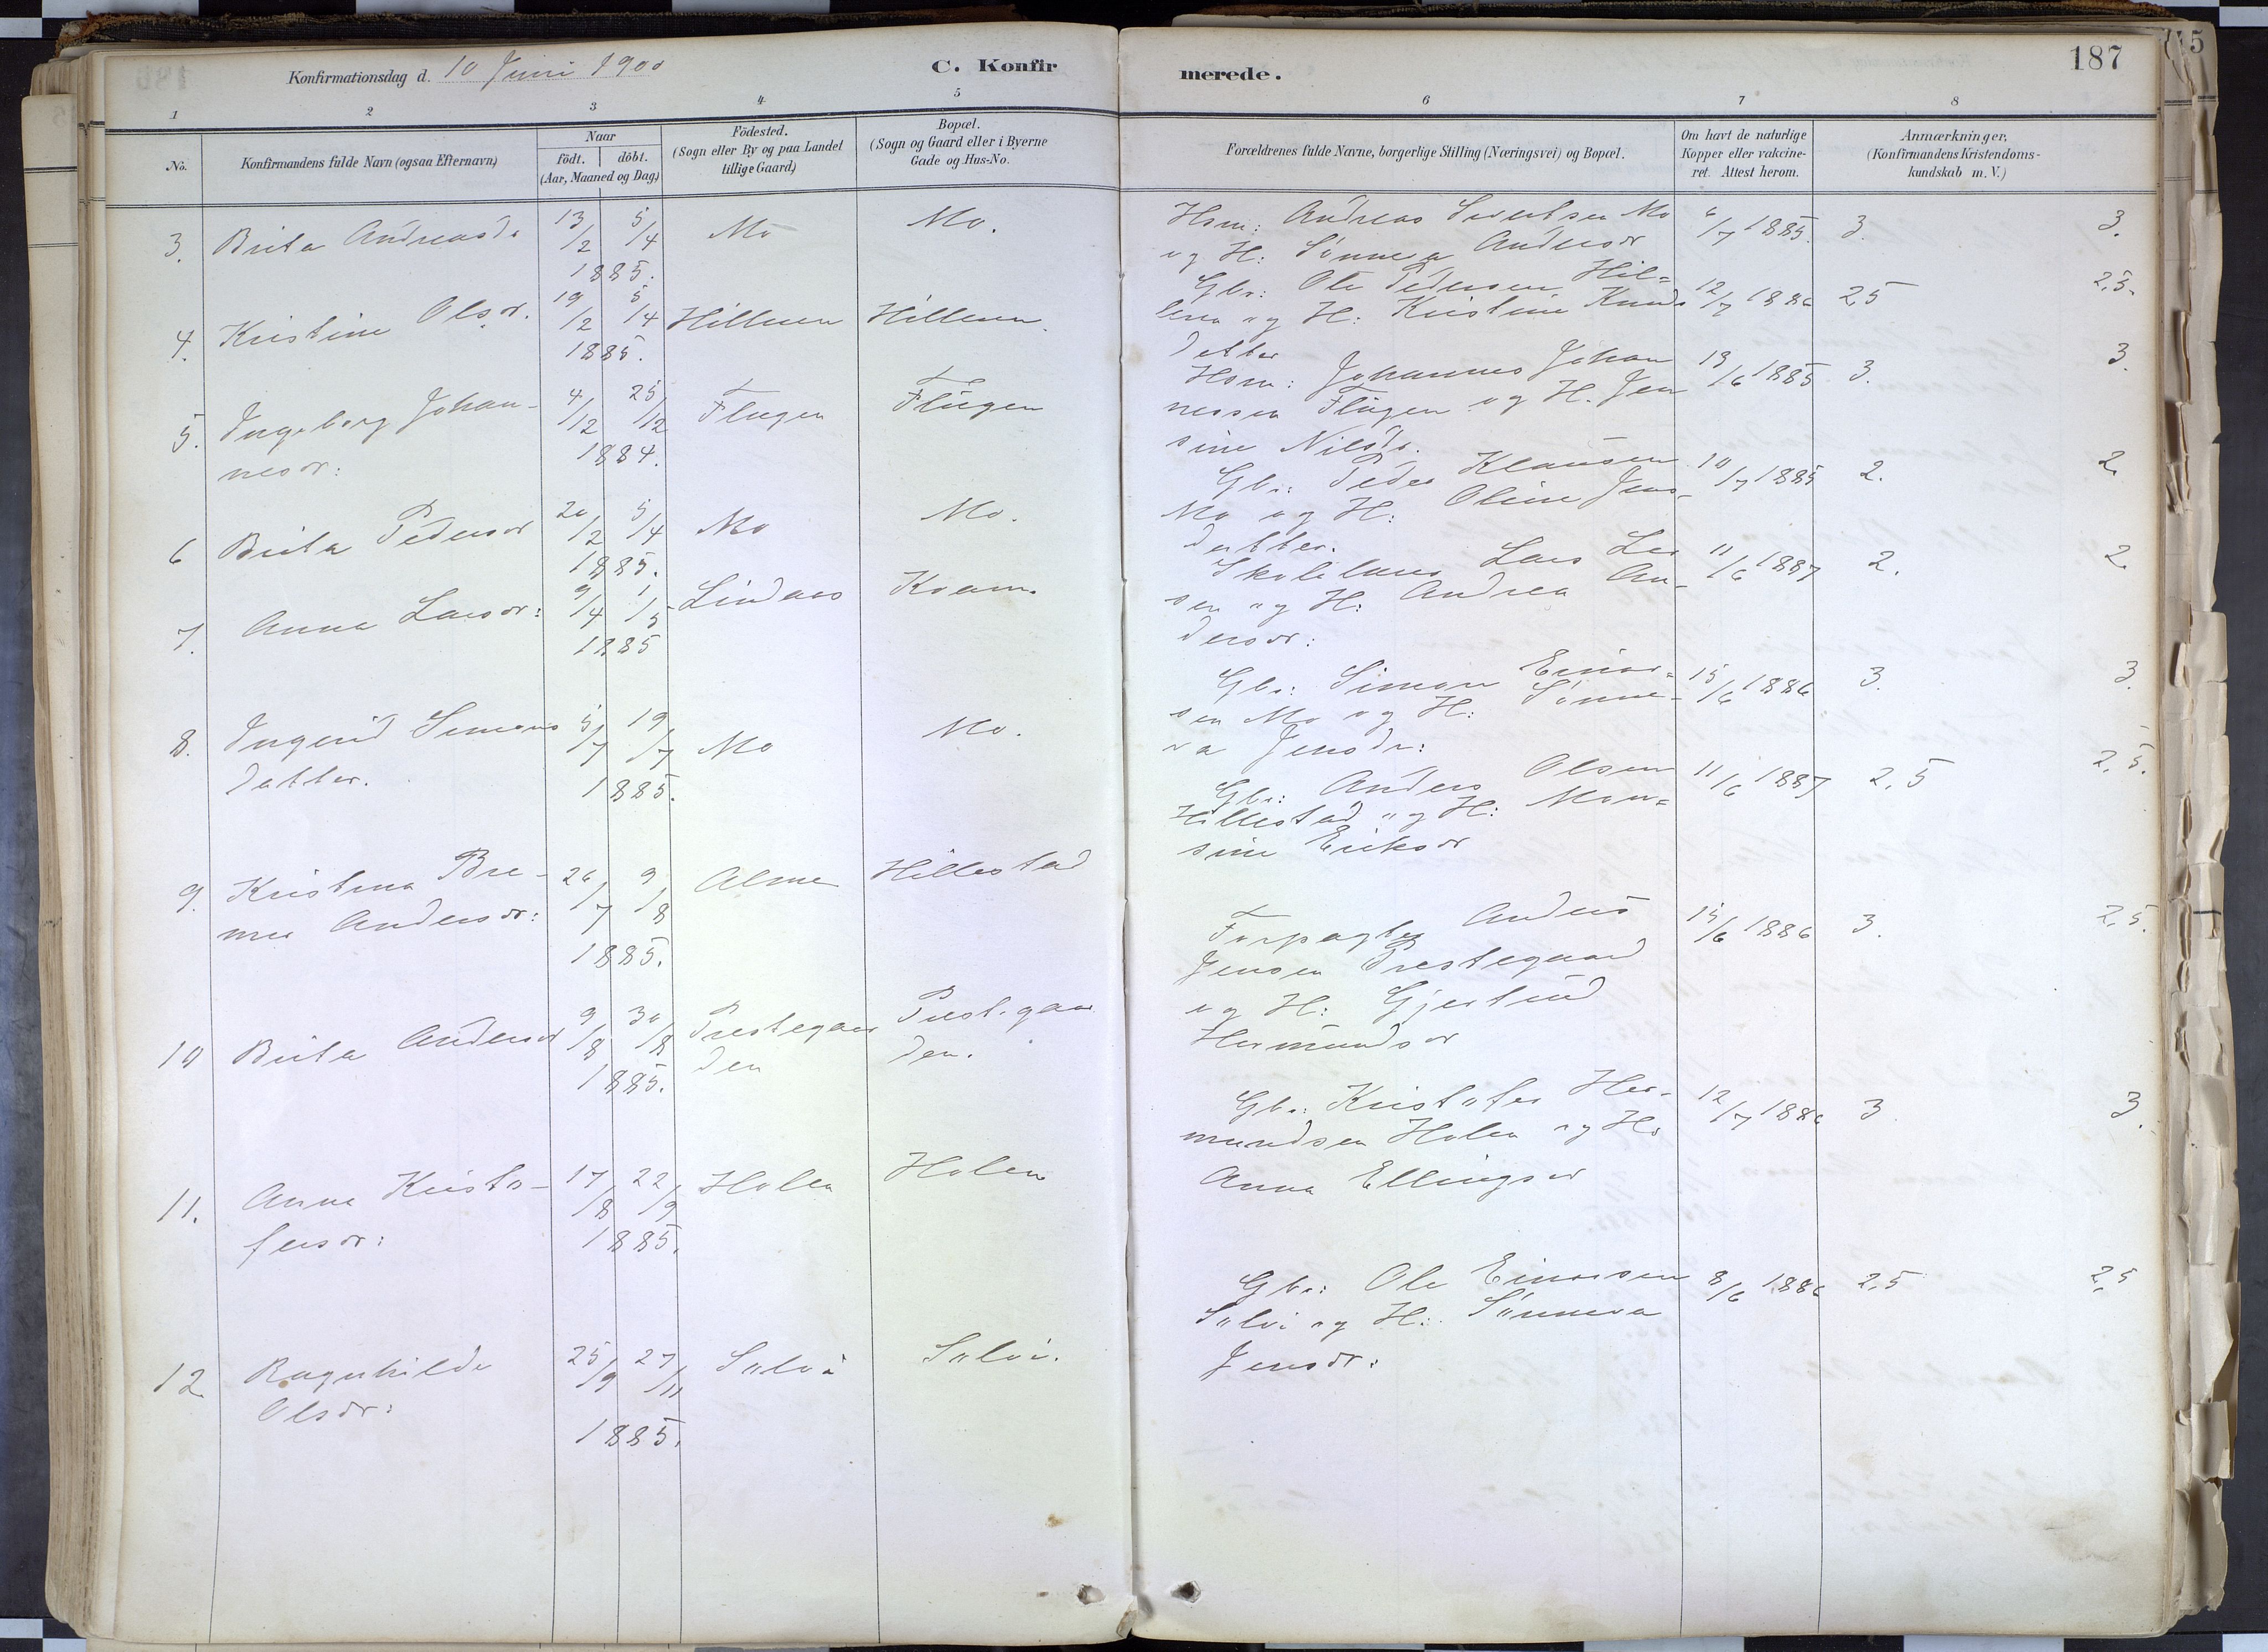 Konfirmationsdag d. 10 Juni 1900
C. Konfirmerede.
187
1 2 3 4 5 6 7 8
No.
Konfirmandens fulde Navn (ogsaa Efternavn)
Naar
födt. döbt.
(Aar, Maaned og Dag)
Födested.
(Sogn eller By og paa Landet
tillige Gaard)
Bopæl.
(Sogn og Gaard eller i Byerne
Gade og Hus-No.
Forældrenes fulde Navne, borgerlige Stilling (Næringsvei) og Bopæl.
Om havt de naturlige
Kopper eller vakcine-
ret. Attest herom.
Anmærkninger,
(Konfirmandens Kristendoms-
kundskab m. V.)
3. Brita Andreasdr 13/2 5/4 1885. Mo Mo.
Hsm: Andreas Sivertsen Mo
og H: Sønneva Andersdr
6/7 1885. 3. 3.
4. Kristine Olsdr. 19/2 5/4 1885. Hilleren Hilleren.
Gbr: Ole Pedersen Hil=
leren og H: Kristine Knuds
datter
12/7 1886 2,5 2,5.
5. Ingeborg Johan-
nesdr: 4/12 25/12 1884. Flugen Flugen
Hsm: Johannes Johan
nessen Flugen og H. Jen
sine Nilsdr.
19/6 1885 3. 3.
6 Brita Pedersdr 20/2 5/4 1885. Mo Mo.
Gbr: Peder Klausen
Mo og H: Oline Jens-
datter.
10/7 1885 2. 2.
7. Anna Larsdr: 9/4 1/5 1885 Lindaas Kvam.
Skolelærer Lars Lar
sen og H: Andrea An-
dersdr:
11/6 1887 2. 2.
8. Ingerid Simons
datter. 5/7 19/7 1885. Mo Mo.
Gbr: Simon Einar-
sen Mo og H: Sønne-
va Jensdr:
15/6 1886 3. 3.
9. Kristina Bre-
mer Andersdr: 26/7 9/8 1885. Alme Hillestad
Gbr: Anders Olsen
Hillestad og H: Mon=
sine Eriksdr
11/6 1887 2,5 2,5.
10 Brita Andersdr 9/8 30/8 1885. Prestegaar
den Prestegaar
den.
Forpagter Anders
Jensen Prestegaard
og H: Gjertrud
Hermundsdr
15/6 1886 3. 2,5.
11. Anna Kristo-
fersdr: 17/8 22/9 1885. Holen Holen
Gbr: Kristofer Her-
mundsen Holen og H:
Anna Ellingsdr
12/7 1886 3 3.
12 Ragnhilde
Olsdr: 25/9 27/11 1885. Solvi Solvi.
Gbr: Ole Einarsen
Solvi og H: Sønneva
Jensdr:
8/6 1886 2,5 2,5